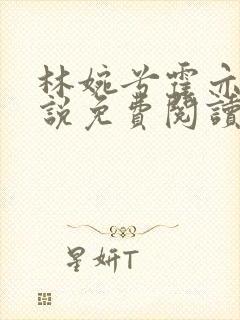 林婉兮霍亦
説免費閱讀
星妍T